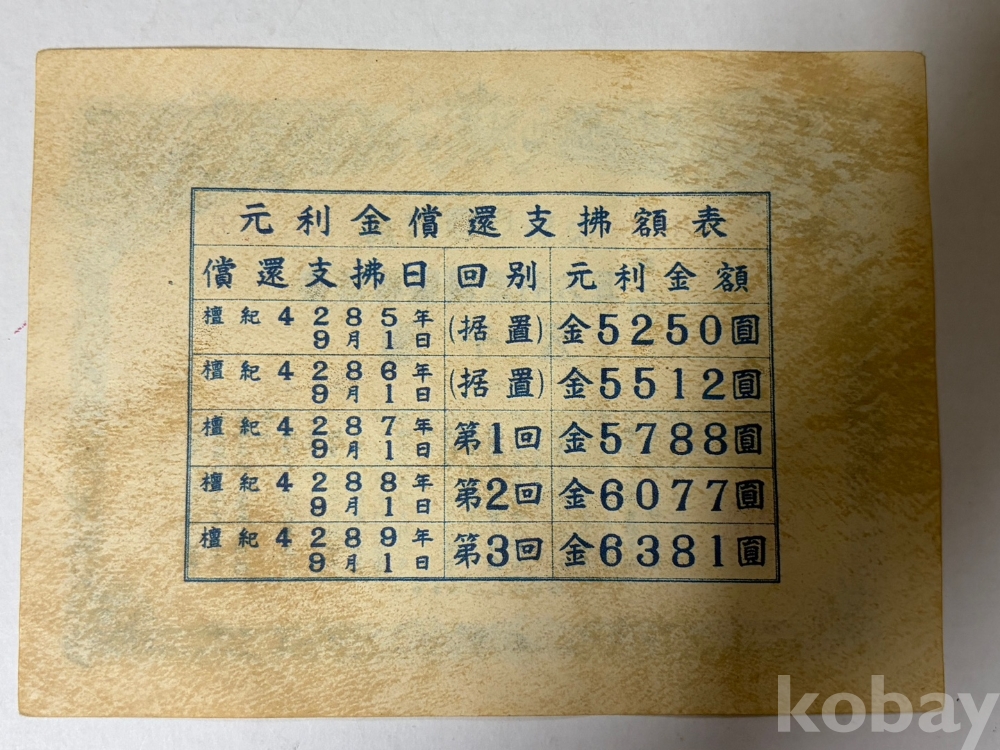 元利金償還支拂額表
償還支拂日 回別 元利金額
檀紀4285年9月1日 (据置) 金5250圓
檀紀4286年9月1日 (据置) 金5512圓
檀紀4287年9月1日 第1回 金5788圓
檀紀4288年9月1日 第2回 金6077圓
檀紀4289年9月1日 第3回 金6381圓
kobay